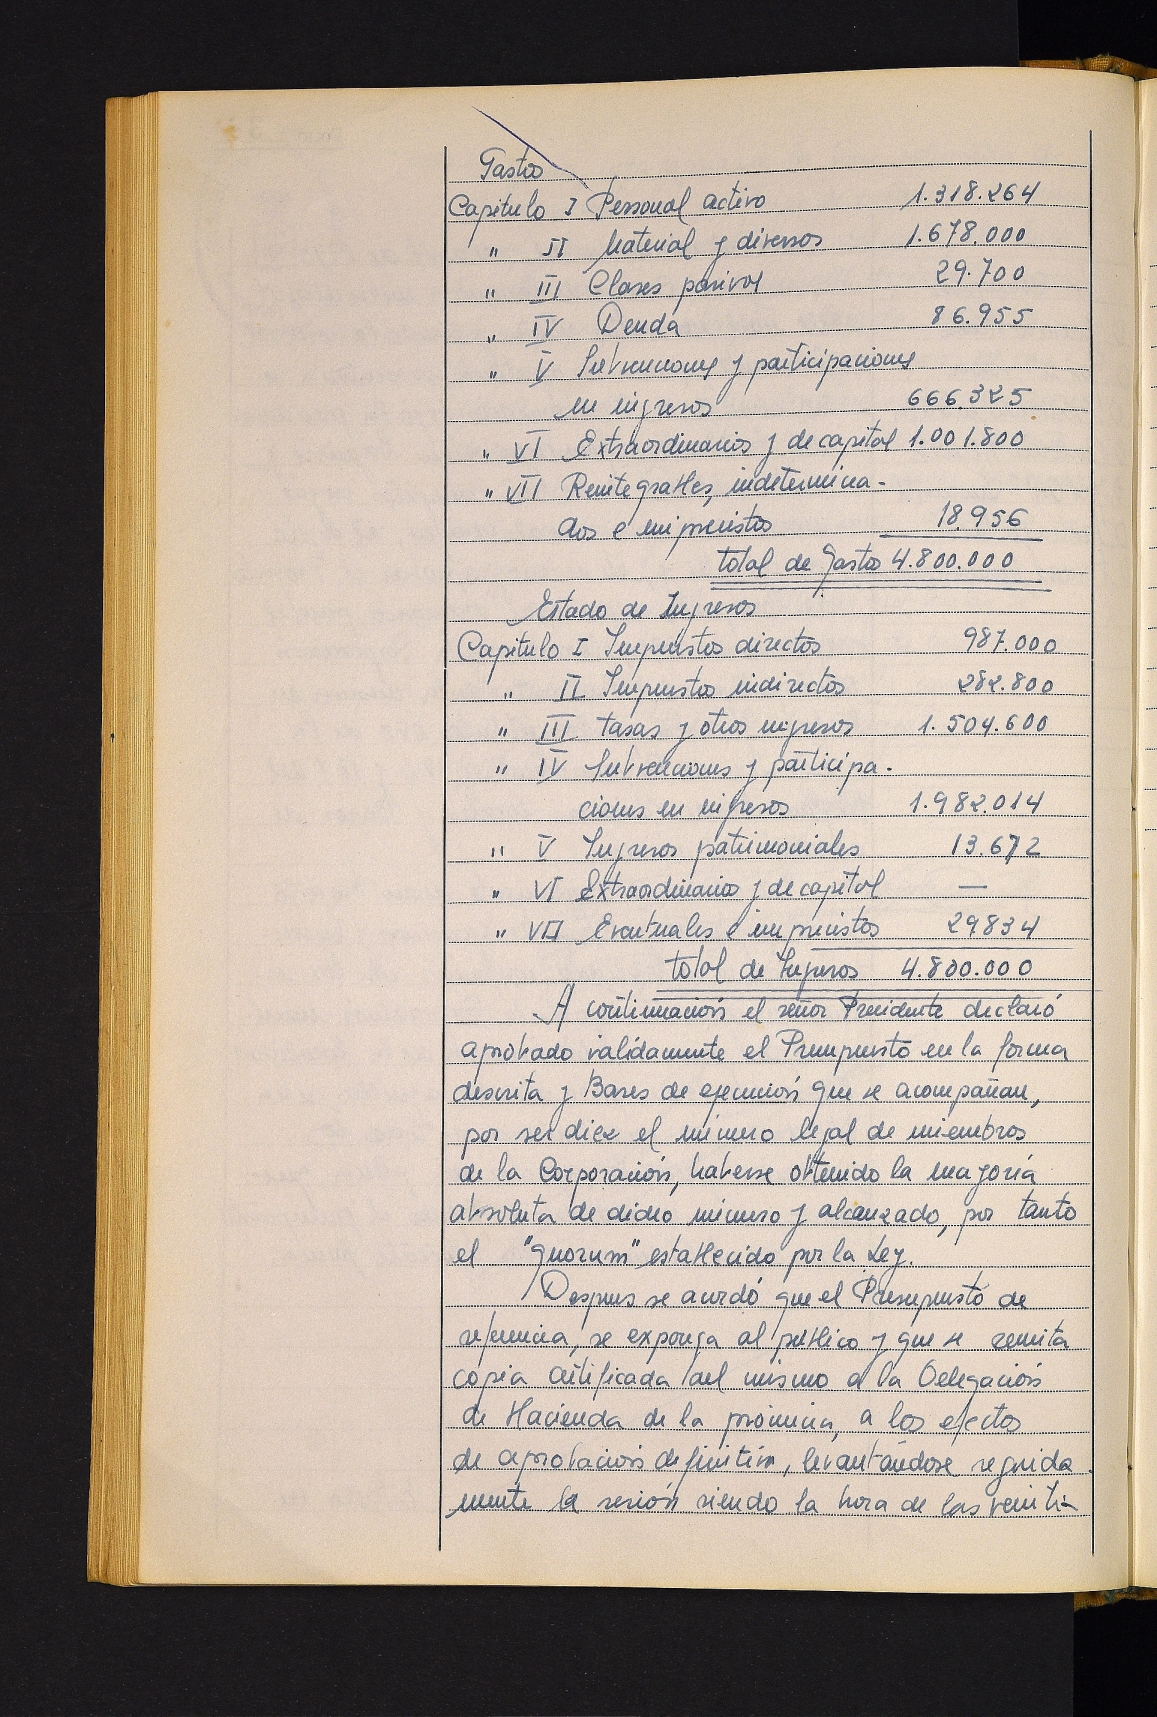 Gastos
Capitulo I Personal activo 1.318.264
" II Material y diversos 1.678.000
" III Clases pasivas 29.700
" IV Deuda 86.955
" V Subvenciones y participaciones
en ingresos 666.325
" VI Extraordinarios y de capital 1.001.800
" VII Reintegrables, indetermina-
dos e imprevistos 18.956
total de Gastos 4.800.000
Estado de Ingresos
Capitulo I Impuestos directos 987.000
" II Impuestos indirectos 282.800
" III tasas y otros ingresos 1.504.600
" IV Subvenciones y participa-
ciones en ingresos 1.982.014
" V Ingresos patrimoniales 13.672
" VI Extraordinarios y de capital —
" VII Eventuales e imprevistos 29.834
total de Ingresos 4.800.000
A continuación el señor Presidente declaró
aprobado validamente el Presupuesto en la forma
descrita y Bases de ejecución que se acompañan,
por ser diez el número legal de miembros
de la Corporación, haberse obtenido la mayoría
absoluta de dicho número y alcanzado, por tanto
el "quorum" establecido por la Ley.
Despues se acordó que el Presupuesto de
referencia, se exponga al publico y que se remita
copia certificada del mismo a la Delegación
de Hacienda de la provincia, a los efectos
de aprobación definitiva, levantándose seguida
mente la sesión siendo la hora de las veinti-